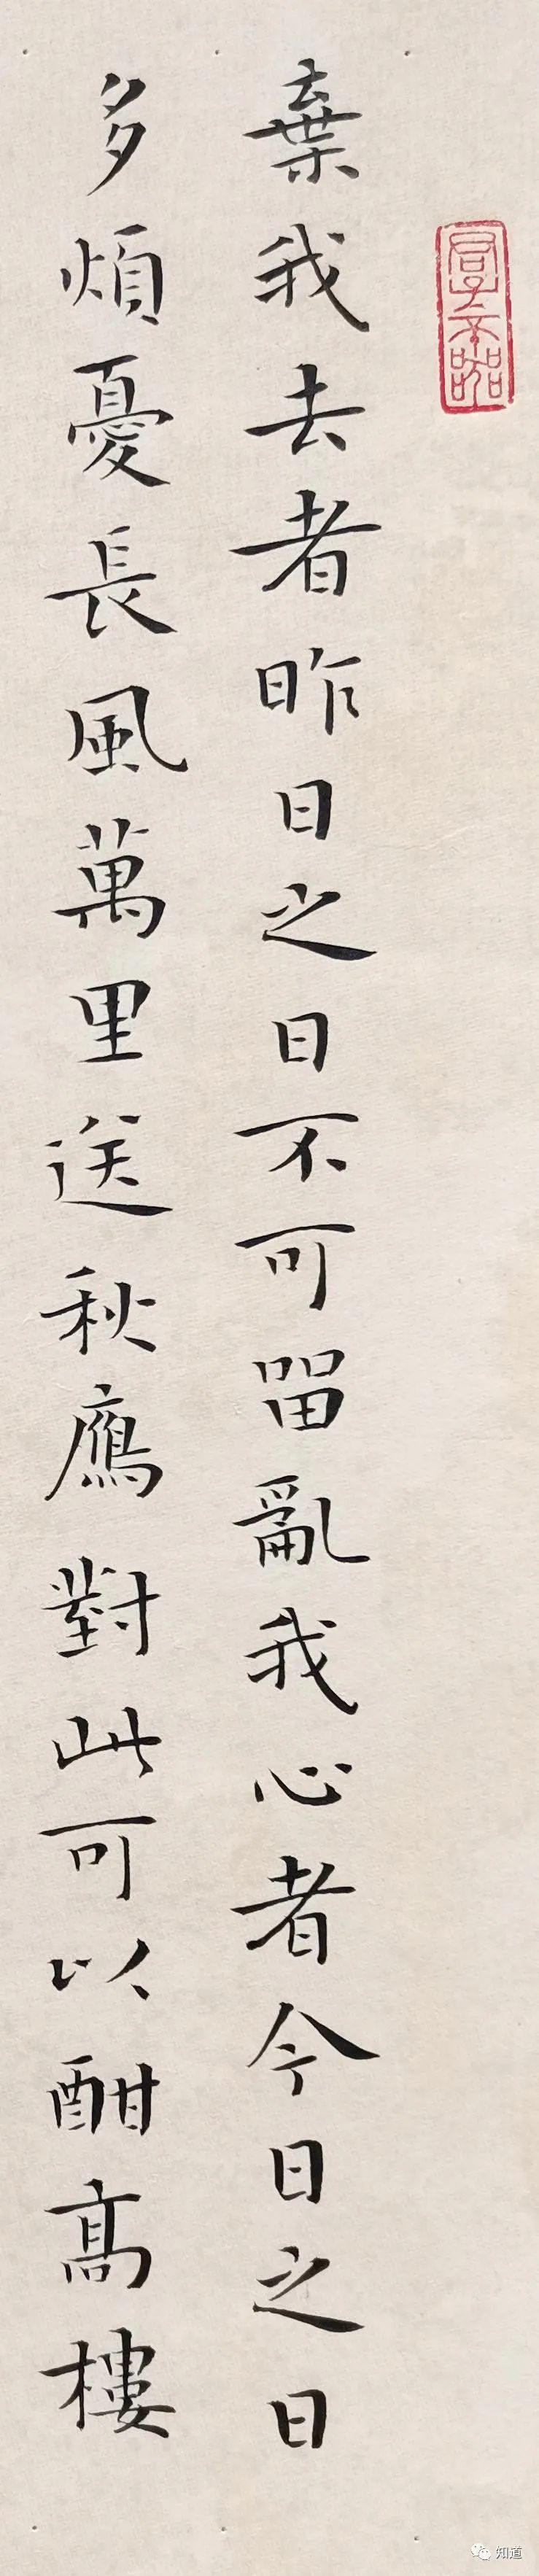 君子不器
棄我去者昨日之日不可留亂我心者今日之日
多煩憂長風萬里送秋鴈對此可以酣髙樓
知道